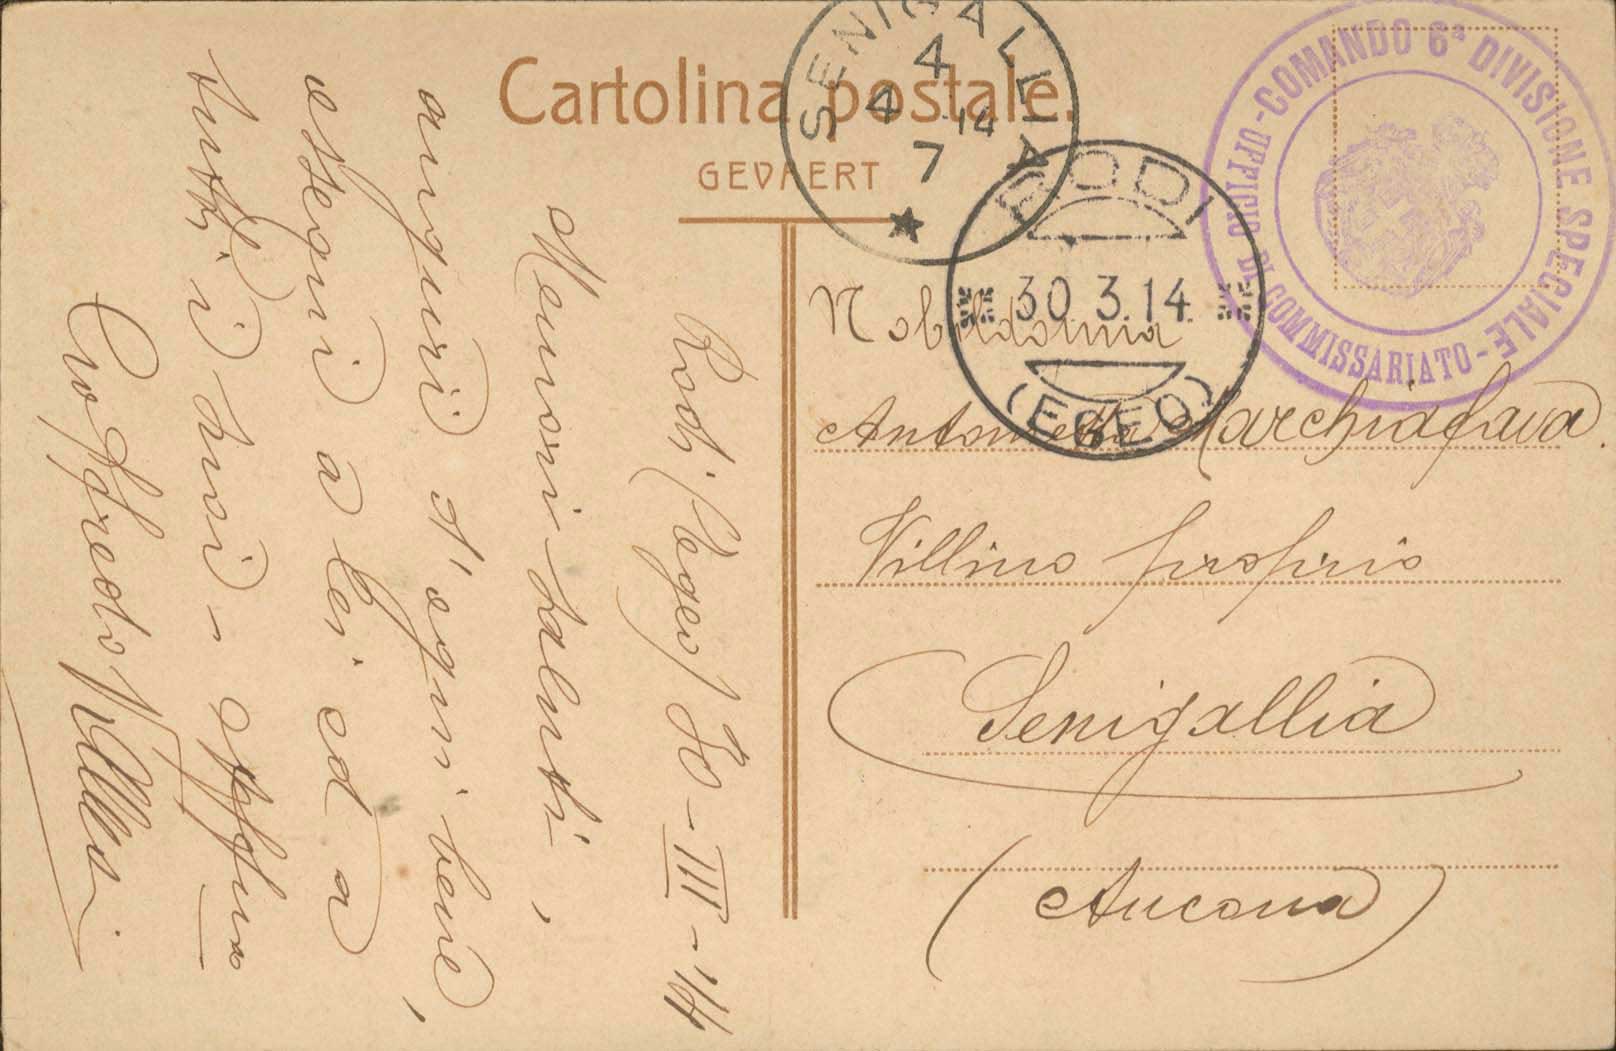 Cartolina postale.
GEVAERT
SENIGALLIA
4
4 14
7
RODI
30 3.14
(EGEO)
COMANDO 6ª DIVISIONE SPECIALE
- UFFICIO DI COMMISSARIATO -
Nobildonna
Antonietta Marchiafava.
Villino proprio
Senigallia
(Ancona)
Rodi (Egeo) 30-III-14
Memori saluti,
auguri d'ogni bene,
ossequi a lei ed a
tutti i suoi - affmo
Goffredo